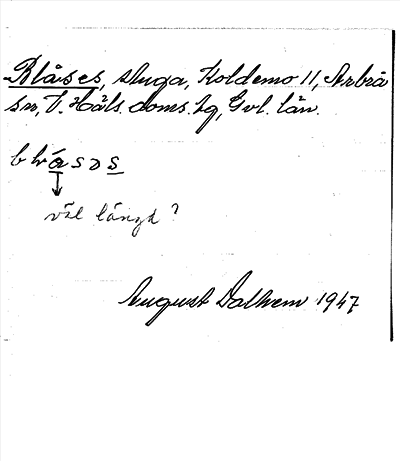 Blåses, stuga, Koldemo 11, Arbrå
sn, V. Häls. doms. hg, Gvl. län.
väl längd?
August Dalhem 1947